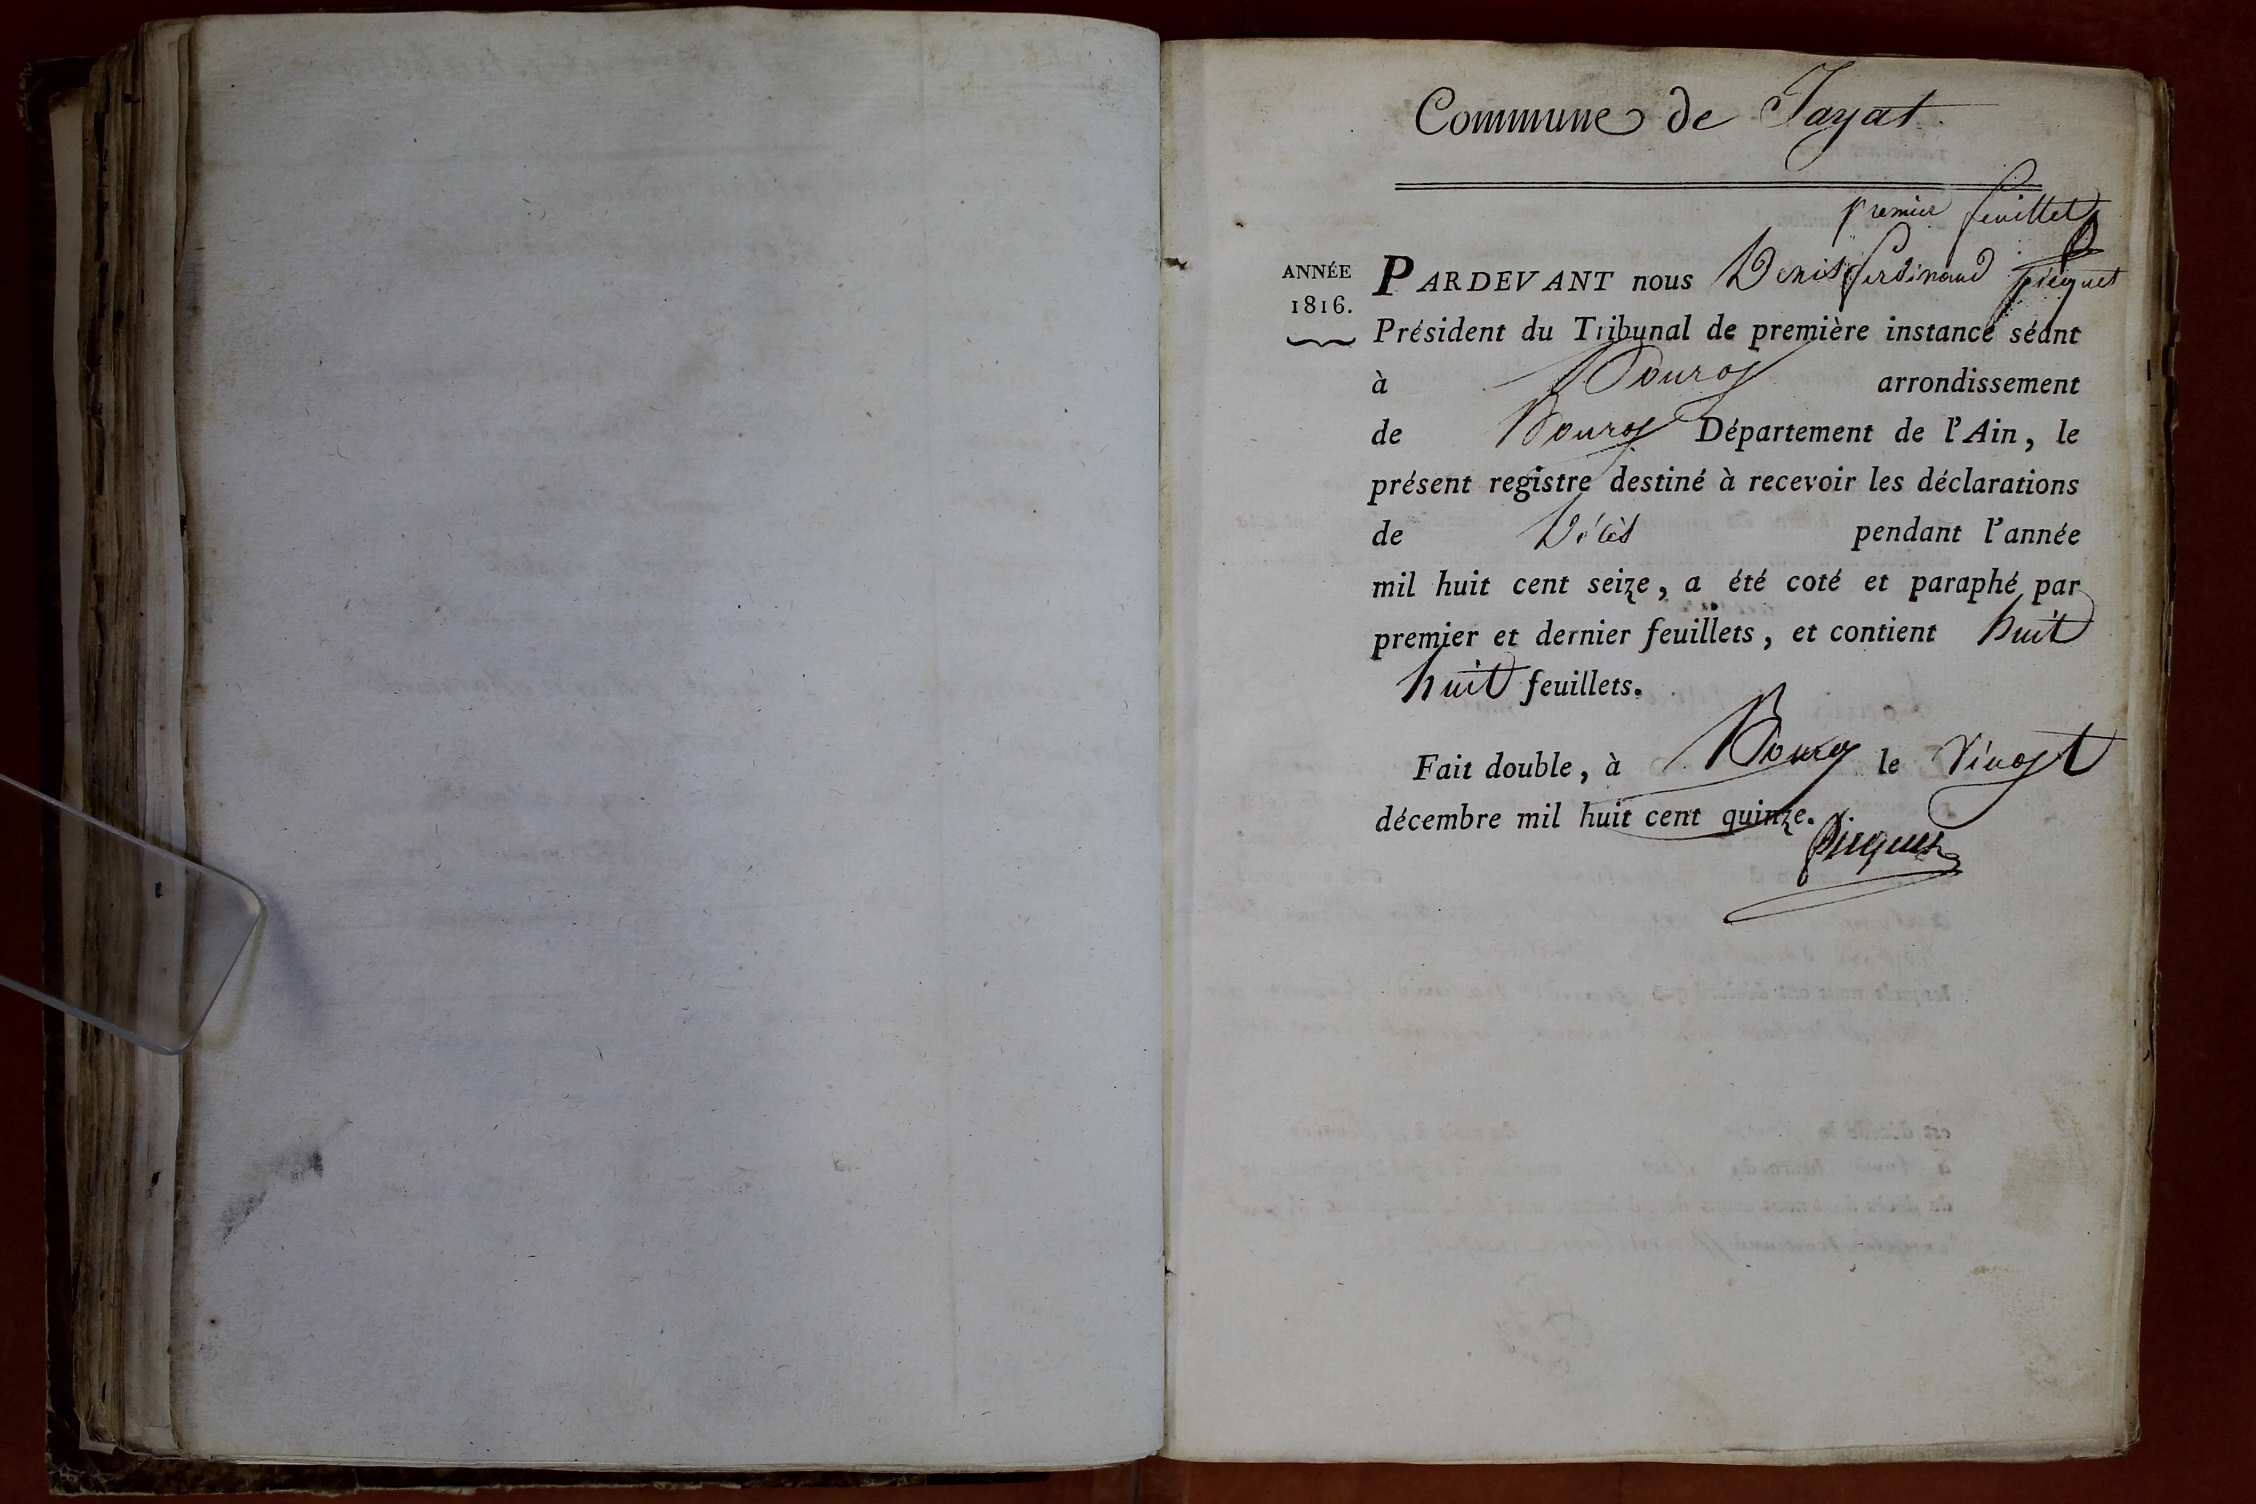 Commune de Jayat.
premier feuillet
ANNÉE
1816.
PARDEVANT nous Denis ferdinand picquet
Président du Tribunal de première instance séant
à Bourg arrondissement
de Bourg Département de l'Ain, le
présent registre destiné à recevoir les déclarations
de Décès pendant l'année
mil huit cent seize, a été coté et paraphé par
premier et dernier feuillets, et contient huit
huit feuillets.
Fait double, à Bourg le Vingt
décembre mil huit cent quinze.
Picquet